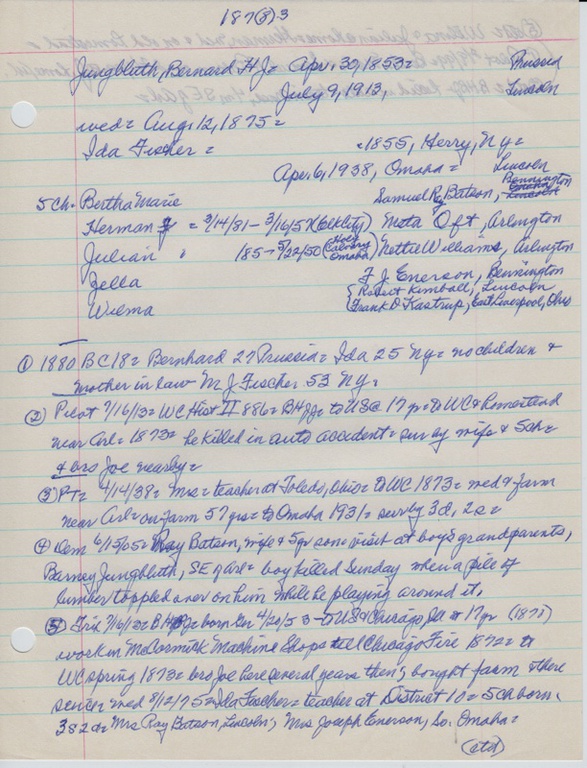 187(8)-3
Jungbluth, Bernard H Jr = Apr. 30, 1853 = Prussia
July 9, 1913, Lincoln
wed = Aug. 12, 1875 =
Ida Fischer = 1855, Henry, Ny =
Apr. 6, 1938, Omaha = Lincoln
5 ch. Bertha Marie Samuel Ray Batson, Bennington Omaha Lincoln
Herman = 3/14/81 - 3/16/57 (Elk City) Meta Oft, Arlington
Julian 185 - 5/22/50 (Holy Calvary Omaha) Nettie Williams, Arlington
Zella F J. Enerson, Bennington
Wilma { Robert Kimball, Lincoln
Frank D Kastrup, East Liverpool, Ohio
① 1880 BC 18 = Bernhard 27 Prussia = Ida 25 Ny = no children &
mother in law M J Fischer 53 NY =
② Pilot 7/16/13 = WC Hist II 886 = BHJ Jr = to US @ 17 yr = to WC & Homestead
near Arl = 1873 = he killed in auto accident = sur by wife & 5 ch =
& bro Joe nearby =
③ PT = 4/14/38 = Mrs = teacher at Toledo, Ohio = to WC 1873 = wed & farm
near Arl = on farm 57 yrs = to Omaha 1931 = sur by 3d, 2s =
④ Dem 6/15/05 = Ray Batson, wife & 5 yr son visit at boy's grandparents,
Barney Jungbluth, SE of Arl = boy killed Sunday when a pile of
lumber toppled over on him while he playing around it.
⑤ Trib 7/16/13 = BHJ Jr born Ger 4/30/53 - to US & Chicago, Ill @ 17 yr (1871)
work in McCormick Machine Shops till Chicago Fire 1872 = to
WC spring 1873 = bro Joe here several years then; bought farm & there
since = wed 8/12/75 = Ida Fischer = teacher at District 10 = 5 ch born,
3 s 2 d = Mrs Ray Batson, Lincoln; Mrs Joseph Enerson, So. Omaha =
(ctd)